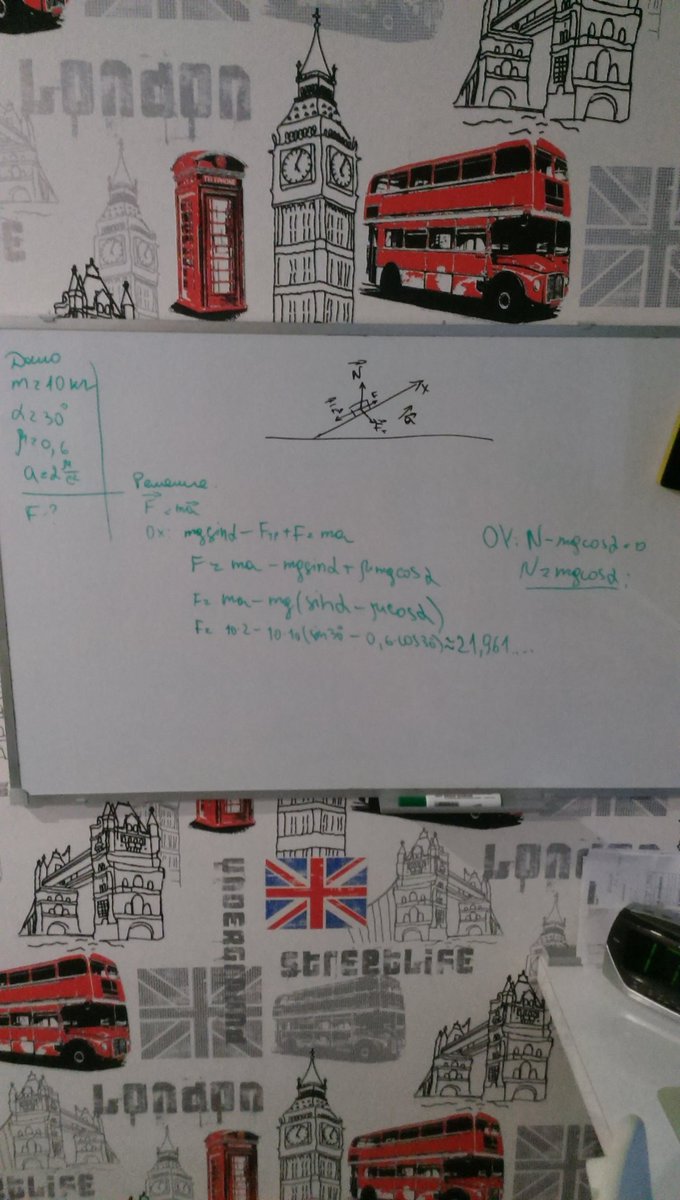 LONDON
TELEPHONE
LIFE
Дано
m = 10 кг
α = 30°
μ = 0,6
a = 2 м/с²
F - ?
N
x
a
Решение
F = ma
Ox: mgsinα - Fтр + F = ma
F = ma - mgsinα + μmgcosα
F = ma - mg(sinα - μcosα)
F = 10·2 - 10·10(sin30° - 0,6·cos30°) ≈ 21,961....
OY: N - mgcosα = 0
N = mgcosα;
LONDON
UNDERGROUND
STREETLIFE
LONDON
STREETLIFE